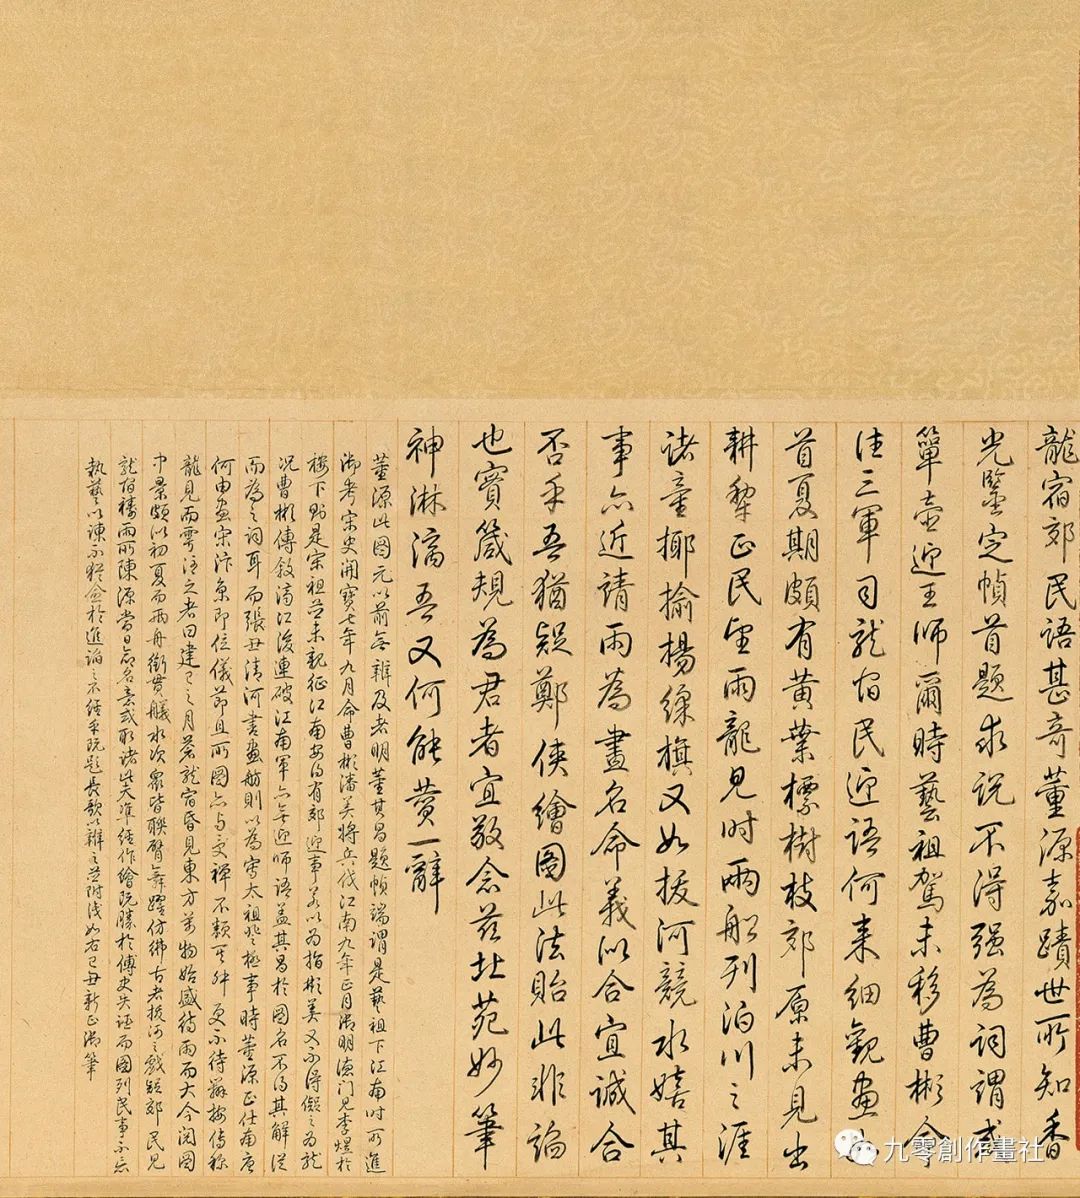 龍宿郊民語甚奇董源嘉蹟世所知香
光鑒定幀首題求説不得强為詞謂或
簞壺迎王師爾時藝祖駕未移曹彬令
往三軍司龍宿民迎語何来細觀畫
首夏期頗有黃葉標樹枝郊原未見出
耕犂正民望雨龍見时兩船列泊川之涯
諸童揶揄揚綵旗又如拔河競水嬉其
事亦近請雨為畫名命義以合宜誠合
否乎吾猶疑鄭俠繪圖此法貽此非諂
也實箴規為君者宜敬念茲北苑妙筆
神淋漓吾又何能費一辭
董源此圖元以前無辨及者明董其昌題幀端謂是藝祖下江南时所進
御考宋史開寶七年九月命曹彬潘美將兵伐江南九年正月御明德門見李煜於
樓下則是宋祖並未親征江南安得有郊迎事若以为指彬美又不得儗之为龍
况曹彬傳敘濟江後連破江南軍亦無迎師語蓋其昌於圖名不得其解從
而為之词耳而張丑清河書畫舫則以為寫太祖登極事時董源正仕南唐
何由畫宋汴京即位儀节且所圖亦与受禅不類更不待辨按傳称
龍見而雩注之者曰建巳之月蒼龍宿昏見東方萬物始盛待雨而大今阅圖
中景頗似初夏而兩舟銜貫艤水次眾皆聯臂舞踏仿彿古者拔河之戲疑郊民見
龍宿禱雨所陳源當日命名意或取諸此夫準經作繪既勝於傳史失证而圖列民事不忘
執藝以諫不猶愈於進諂之不經乎既题長歌以辨之並附识如右己丑新正御筆
九零創作畫社